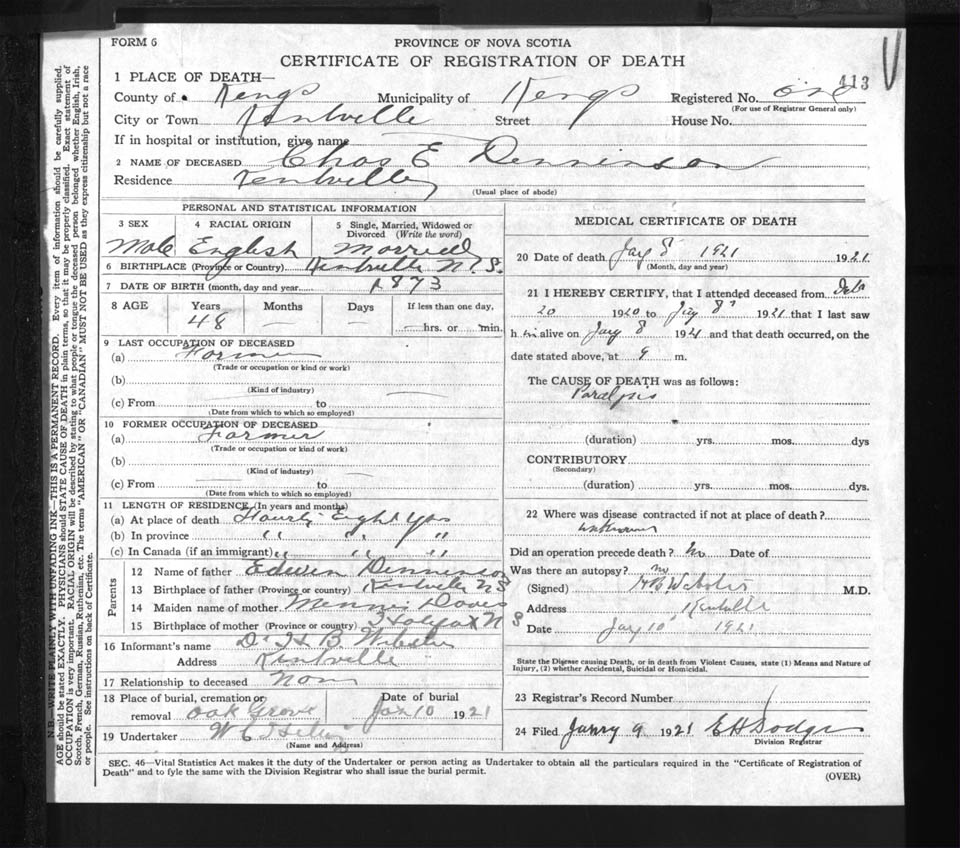 FORM 6
PROVINCE OF NOVA SCOTIA
CERTIFICATE OF REGISTRATION OF DEATH
413
1 PLACE OF DEATH—
County of Kings Municipality of Kings Registered No. one
(For use of Registrar General only)
City or Town Kentville Street House No.
If in hospital or institution, give name
2 NAME OF DECEASED Chas E Denninson
Residence Kentville
(Usual place of abode)
PERSONAL AND STATISTICAL INFORMATION
3 SEX 4 RACIAL ORIGIN 5 Single, Married, Widowed or Divorced (Write the word)
Male English Married
6 BIRTHPLACE (Province or Country) Kentville N.S.
7 DATE OF BIRTH (month, day and year) 1873
8 AGE Years Months Days If less than one day,
48 — hrs. or min.
9 LAST OCCUPATION OF DECEASED
(a) Farmer
(Trade or occupation or kind or work)
(b)
(Kind of industry)
(c) From to
(Date from which to which so employed)
10 FORMER OCCUPATION OF DECEASED
(a) Farmer
(Trade or occupation or kind of work)
(b)
(Kind of industry)
(c) From to
(Date from which to which so employed)
11 LENGTH OF RESIDENCE (In years and months)
(a) At place of death Fourty Eight Yrs
(b) In province " " "
(c) In Canada (if an immigrant) " " "
Parents
12 Name of father Edwin Denninson
13 Birthplace of father (Province or country) Kentville N S
14 Maiden name of mother Minnie
15 Birthplace of mother (Province or country) Halifax N S
16 Informant's name Dr H B Webster
Address Kentville
17 Relationship to deceased Non
18 Place of burial, cremation or removal Oak Grove Date of burial Jan 10 1921
19 Undertaker W C
(Name and Address)
MEDICAL CERTIFICATE OF DEATH
20 Date of death Jany 8 1921 1921
(Month, day and year)
21 I HEREBY CERTIFY, that I attended deceased from
20 1920 to Jany 8 1921 that I last saw
h im alive on Jany 8 1921 and that death occurred, on the
date stated above, at 9 m.
The CAUSE OF DEATH was as follows:
Paralysis
(duration) yrs. mos. dys
CONTRIBUTORY
(Secondary)
(duration) yrs. mos. dys.
22 Where was disease contracted if not at place of death?
unknown
Did an operation precede death? No Date of
Was there an autopsy? no
(Signed) H B Webster M.D.
Address Kentville
Date Jany 10 1921
State the Disease causing Death, or in death from Violent Causes, state (1) Means and Nature of
Injury, (2) whether Accidental, Suicidal or Homicidal.
23 Registrar's Record Number
24 Filed 9 1921 E H Dodge
Division Registrar
SEC. 46—Vital Statistics Act makes it the duty of the Undertaker or person acting as Undertaker to obtain all the particulars required in the "Certificate of Registration of
Death" and to fyle the same with the Division Registrar who shall issue the burial permit.
(OVER)
N.B. WRITE PLAINLY WITH UNFADING INK—THIS IS A PERMANENT RECORD. Every item of information should be carefully supplied.
AGE should be stated EXACTLY. PHYSICIANS should STATE CAUSE OF DEATH in plain terms, so that it may be properly classified. Exact statement of
OCCUPATION is very important. RACIAL ORIGIN will be described by stating to what people or tongue the deceased person belonged whether English, Irish,
Scotch, French, German, Russian, Ruthenian, etc. The terms "AMERICAN" OR "CANADIAN" MUST NOT BE USED as they express citizenship but not a race
or people. See instructions on back of Certificate.